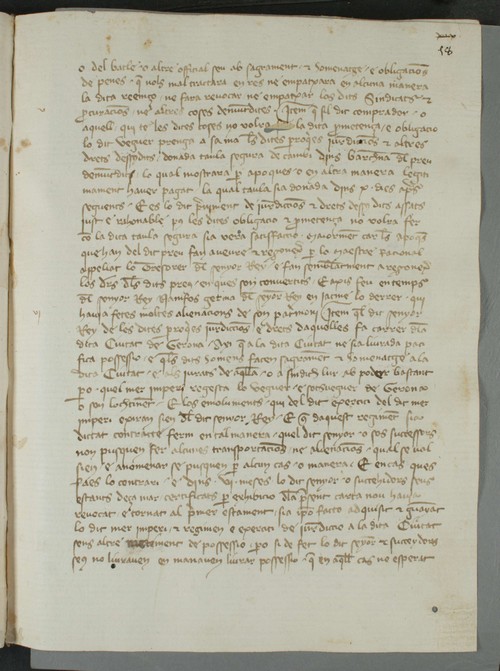 58
o del batle o altre official seu ab sagrament & homenatge e obligacions
de penes que vols mal tractara en res ne empatxara en alcuna manera
la dita reemço ne fara revocar ne empatxar los dits Sindicats &
procuracions ne altres coses demuntdites Item que si·l dit comprador o
aquell qui te les dites coses no volra la dita prometença e obligacio
lo dit veguer prenga a sa ma los dites jurediccions & altres
drets dessusdits donada taula segura de cambi dins barchna del preu
demuntdit lo qual mostrara per apoques o en altra manera legiti
mament haver pagat la qual taula sia donada dins dies apres
seguents E es lo dit de jurediccions & drets dessus dits assats
just e rahonable pus les dites obligacio & prometença no volra fer
e la dita taula segura sia vera satisfaccio e maiorment car les apoques
que han del dit preu fan a veure e regonexer per lo maestre racional
appellat lo tresorer del senyor Rey e fan semblantment a regonexer
los dits preu en que son convertits E apres feu en temps
del senyor Rey Namfos germa del senyor Rey en Jacme lo derrer qui
havia fetes moltes alienacions de son patrimoni Item quel dit senyor
Rey de les dites jurediccions e drets daquelles fa carrer dela
dita Ciutat de Gerona Axi que a la dita Ciutat ne sia liurada pac
ifica possessio e quels dits homens facen sagrament & homenatge a la
dita Ciutat e als jurats de aquella o a sindich lur ab poder bastant
pero quel mer imperi regesta lo veguer e sotsveguer de Gerona
o son lochtinent E los emoluments qui del dit exercici del dit mer
imperi exiran sien del dit senyor Rey E que daquest regiment sia
dictat contracte ferm en tal manera quel dit senyor o sos successors
non pusquen fer alcunes transportacions ne alienacions qual se vol
sien e anomenar se pusquen per alcun cas o manera E en cas ques
faes lo contrari e dins mesos lo dit senyor o succehidors seus
estants deça mar certificats per exhibicio dela present carta nou havien
revocat e tornat al primer estament sia ipso facto adquisit & guanyat
lo dit mer imperi & regimen e exercici de jurediccio a la dita Ciutat
sens altre de possessio pero si de fet lo dit senyor & succeidors
seus no liuraven en manaven liurar possessio que en aquell cas no esperat